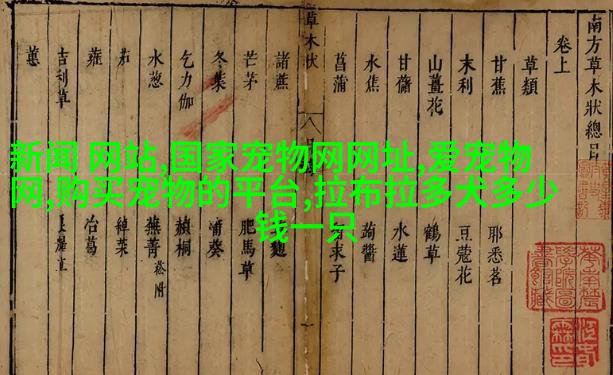 南方草木狀總目
卷上
草類
甘蕉
耶悉茗
末利
豆蔻花
山薑花
鶴草
甘藷
水蓮
水蕉
蒟醬
菖蒲
草木狀
諸蔗
芒茅
肥馬草
冬葉
蒲葵
乞力伽
赬桐
水葱
蕪菁
茄
綽菜
蕹
冶葛
吉利草
蕙
新闻 网站,国家宠物网网址,爱宠物
网,购买宠物的平台,拉布拉多犬多少
钱一只